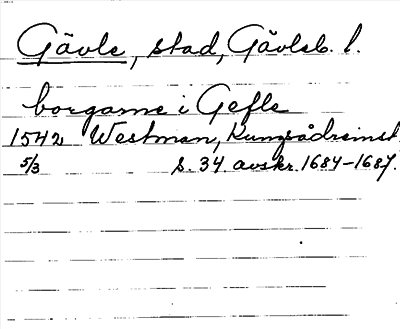 Gävle, stad, Gävleb. l.
borgarne i Gefle
1542 Westman, Kungsådreinst.
5/3 s. 34. avskr. 1684-1687.